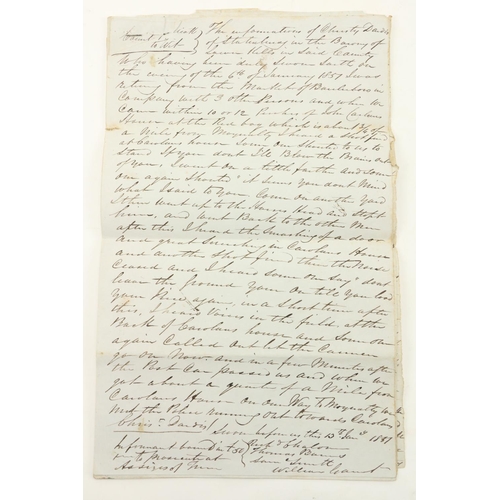 The informations of Christy
of in the Barony of
in Said County
Who having been duly Sworn Saith on
the evening of the 6th of January 1857 I was
returning from the Market of Bailieboro in
Company with 3 other Persons and when we
Came within 10 or 12 Perches of John Carolans
House at the Red bog which is about
a Mile from Moynalty I heard a Shot fired
at Carolans house Some one Shouted to us to
Stand If you dont I'll Blow the Brains out
of you, I went on a little farther and Some
one again Shouted it Seems you dont Mind
what I said to you Come on another yard
I then went up to the Horses Head and Stopt
him, and went Back to the other Men
after this I heard the Smashing of a door
and great Screeching in Carolans House
and another Shot fired then the Noise
Ceased and I heard Some one Say dont
leave the ground you are on till you
again, in a Short time after
this, I heard Voices in the field at the
Back of Carolans house and Some one
again Called Out let the Carmen
go On Now and in a few Minutes after
the Post Car passed us and when we
got about a quarter of a Mile from
Carolans House on our Way to Moynalty we
Met the Police running Out towards Carolans
Sworn before us this 13th Jany 1857
Informant bound in £50
to prosecute at
Assizes of
Thomas
William